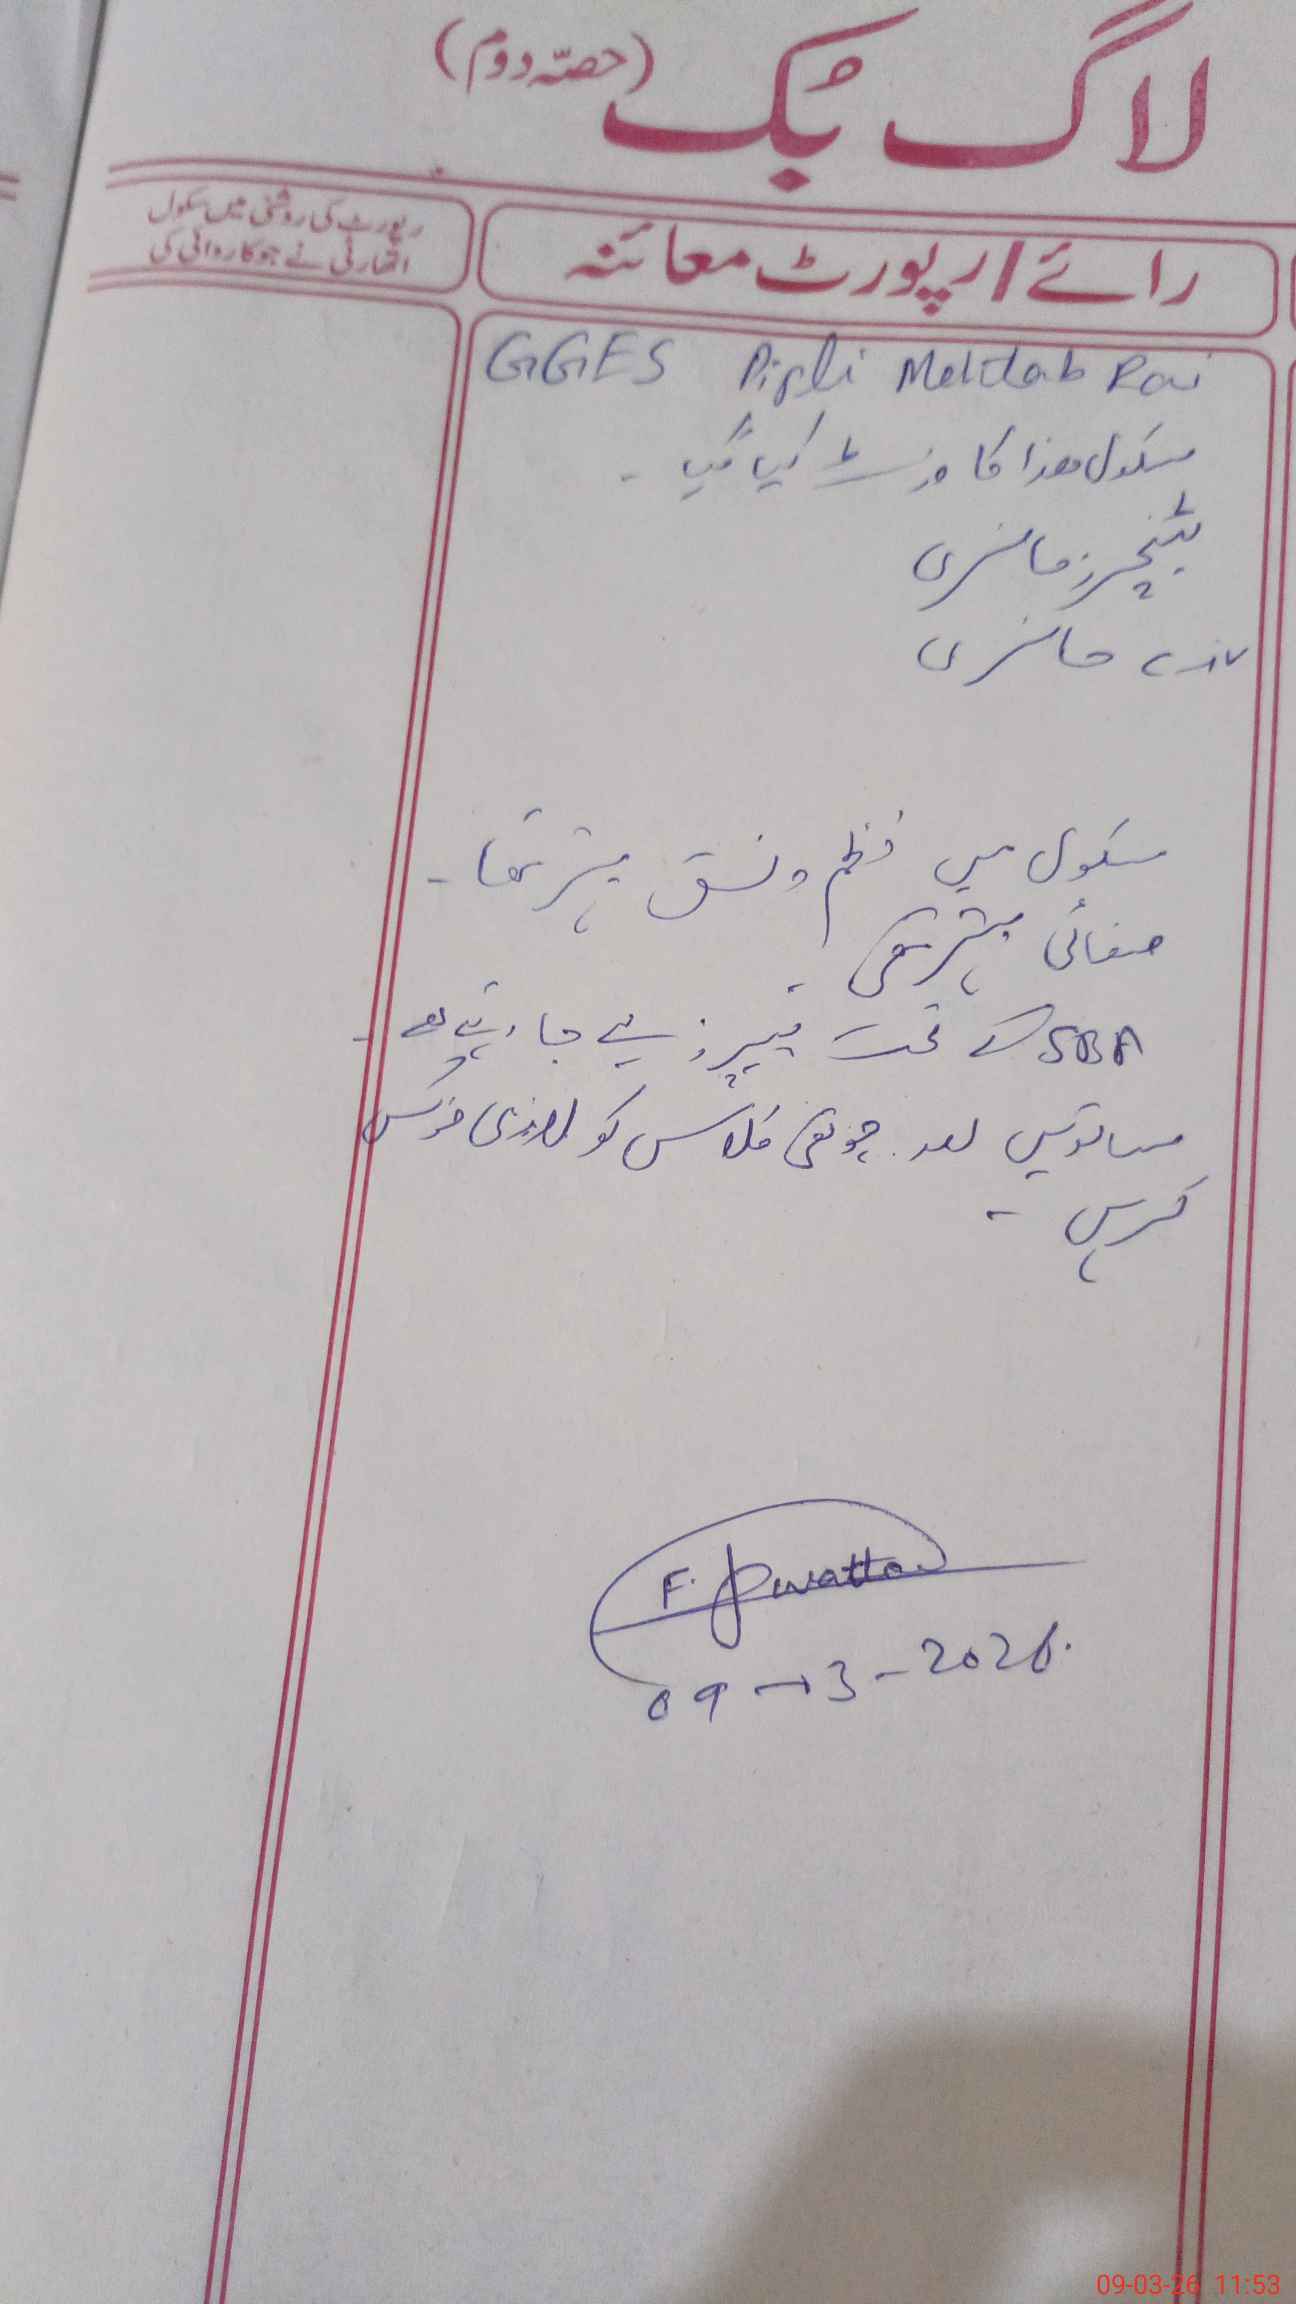 لاگ بک (حصّہ دوم)
رائے / رپورٹ معائنہ
رپورٹ کی روشنی میں سکول
اتھارٹی نے جو کاروائی کی
GGES Pipli Mehtab Rai
سکول ھذا کا وزٹ کیا گیا ۔
ٹیچرز حاضری
حاضری
سکول میں نظم و نسق بہتر تھا ۔
صفائی بہتر تھی ۔
SBA کے تحت پیپرز لیے جا رہے تھے ۔
ساتویں اور چوتھی کلاس کو لازمی فوکس
کریں ۔
F. Watto
09-3-2026.
09-03-26 11:53